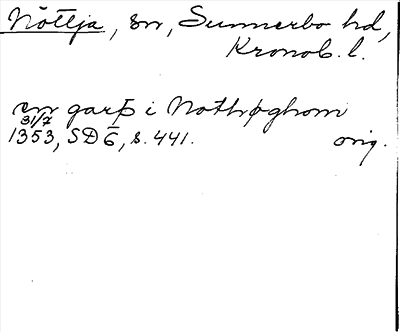 Nöttja, sn, Sunnerbo hd,
Kronob. l.
en garþ i Nothrþghom
31/7
1353, SD 6, s. 441. orig.